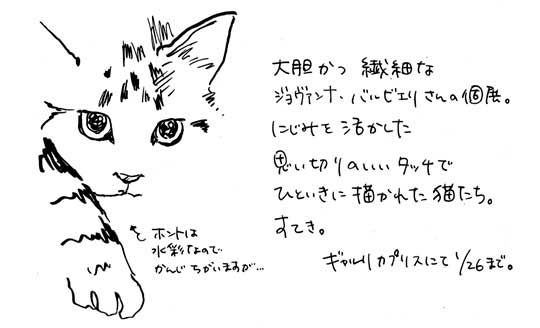 大胆かつ 繊細な
ジョヴァンナ・バルビエリさんの個展。
にじみを活かした
思い切りのいいタッチで
ひといきに描かれた猫たち。
すてき。
ギャルリカプリスにて 1/26まで。
ホントは
水彩なので
かんじちがいますが…